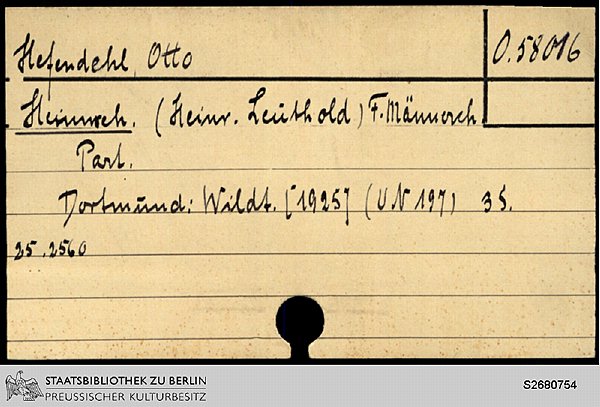 Hefendehl, Otto
O.58016
Heimweh. (Heinr. Leuthold) F. Männerch
Part.
Dortmund: Wildt. [1925] (U N 197) 3 S.
25.2560
STAATSBIBLIOTHEK ZU BERLIN
PREUSSISCHER KULTURBESITZ
S2680754